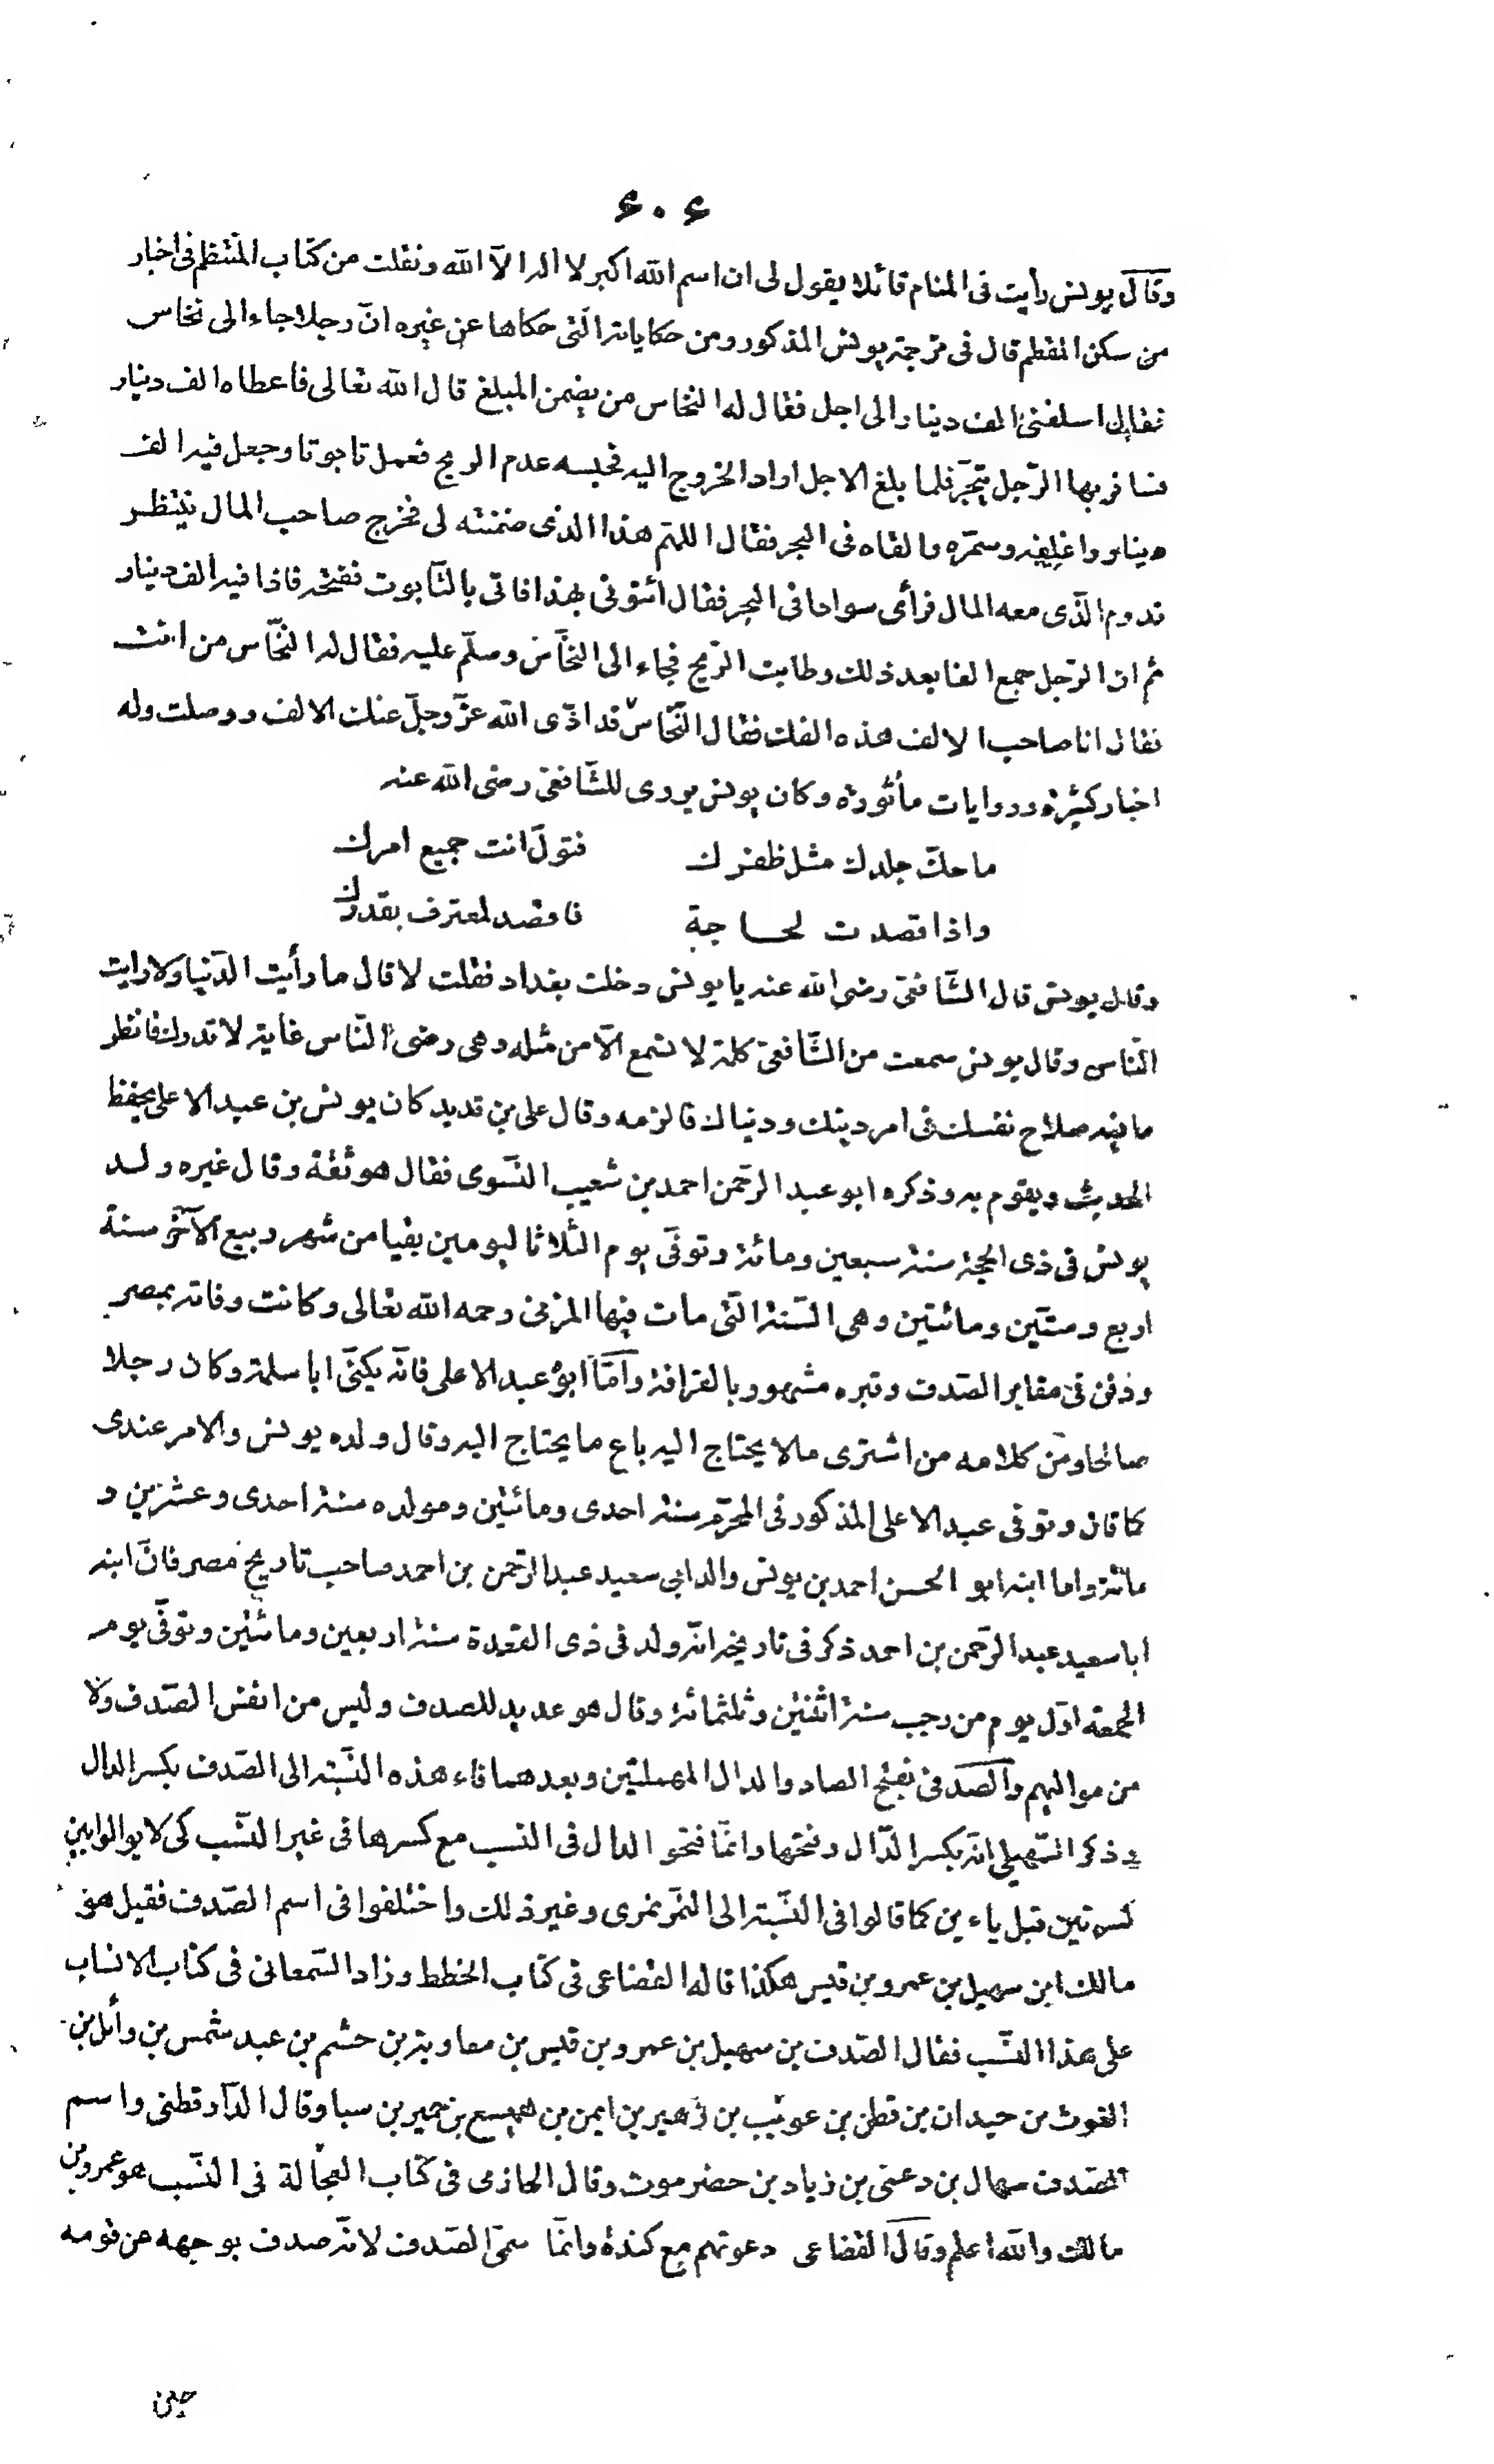 ۶۰۶
وقال يونس رأيت فى المنام قائلا يقول لى ان اسم الله اكبر لا اله الّا الله ونقلت من كتاب المنتظم فى اخبار
من سكن المقطم قال فى ترجمة يونس المذكور ومن حكاياته الّتى حكاها عن غيره انّ رجلا جاء الى نخاس
فقال اسلفنى الف دينار الى اجل فقال له النخاس من يضمن المبلغ قال الله تعالى فاعطاه الف دينار
فسافر بها الرّجل يتّجر فلما بلغ الاجل اراد الخروج اليه فحبسه عدم الريح فعمل تابوتا وجعل فيه الف
دينار واغلقه وسمّره والقاه فى البحر فقال اللهم هذا الذى ضمنته لى فخرج صاحب المال ينتظر
قدوم الّذى معه المال فرأى سوادا فى البحر فقال ائتونى بهذا فاتى بالتابوت ففتحه فاذا فيه الف دينار
ثم ان الرّجل جمع الفا بعد ذلك وطابت الرّيح فجاء الى النخّاس وسلّم عليه فقال له النخّاس من انت
فقال انا صاحب الالف هذه الفك فقال النّخاس قد ادّى الله عزّ وجلّ عنك الالف ووصلت وله
اخبار كثيرة وروايات مأثورة وكان يونس يروى للشّافعى رضى الله عنه
ما حكّ جلدك مثل ظفرك فتولّ انت جميع امرك
واذا قصدت لحاجة فاقصد لمعترف بقدرك
وقال يونس قال الشّافعى رضى الله عنه يا يونس دخلت بغداد فقلت لا قال ما رأيت الدّنيا ولا رايت
النّاس وقال يونس سمعت من الشّافعى كلمة لا تسمع الّا من مثله وهى رضى النّاس غاية لا تدرك فانظر
ما فيه صلاح نفسك فى امر دينك ودنياك فالزمه وقال على بن قديد كان يونس بن عبد الاعلى يحفظ
الحديث ويقوم به وذكره ابو عبد الرّحمن احمد بن شعيب النّسوى فقال هو ثقة وقال غيره ولد
يونس فى ذى الحجة سنة سبعين ومائة وتوفّى يوم الثّلاثا ليومين بقيا من شهر ربيع الآخر سنة
اربع وستّين ومائتين وهى السّنة الّتى مات فيها المزنى رحمه الله تعالى وكانت وفاته بمصر
ودفن فى مقابر الصّدف وقبره مشهور بالقرافة وامّا ابوه عبد الاعلى فانّه يكنّى ابا سلمة وكان رجلا
صالحا ومن كلامه من اشترى ما لا يحتاج اليه باع ما يحتاج اليه وقال ولده يونس والامر عندى
كما قال وتوفى عبد الاعلى المذكور فى المحرّم سنة احدى ومائتين ومولده سنة احدى وعشرين و
مائة واما ابنه ابو الحسن احمد بن يونس والد ابى سعيد عبد الرّحمن بن احمد صاحب تاريخ مصر فانّ ابنه
ابا سعيد عبد الرّحمن بن احمد ذكر فى تاريخه انّه ولد فى ذى القعدة سنة اربعين ومائتين وتوفّى يوم
الجمعة اوّل يوم من رجب سنة اثنتين وثلثمائة وقال هو عديد للصدف وليس من انفس الصّدف ولا
من مواليهم والصّدفى بفتح الصاد والدال المهملتين وبعدهما فاء هذه النّسبة الى الصّدف بكسر الدال
وذكر السّهيلى انّه بكسر الدّال وفتحها وانّما فتحوا الدال فى النسب مع كسرها فى غير النّسب كى لا يوالوا بين
كسرتين قبل ياءين كما قالوا فى النّسبة الى النّمر نمرى وغير ذلك واختلفوا فى اسم الصّدف فقيل هو
مالك ابن سهيل بن عمرو بن قيس هكذا قاله القضاعى فى كتاب الخطط وزاد السّمعانى فى كتاب الانساب
على هذا النّسب فقال الصّدف بن سهيل بن عمرو بن قيس بن معاوية بن حشم بن عبد شمس بن وأئل بن
الغوث بن حيدان بن قطن بن عويب بن زهير بن ايمن بن هميسع بن حمير بن سبا وقال الدّارقطنى واسم
الصّدف سهال بن دعمى بن زياد بن حضرموت وقال الحازمى فى كتاب العجالة فى النسّب هو عمرو بن
مالك والله اعلم وقال القضاعى دعوتهم مع كندة وانّما سمّى الصّدف لانّه صدف بوجهه عن قومه
حين